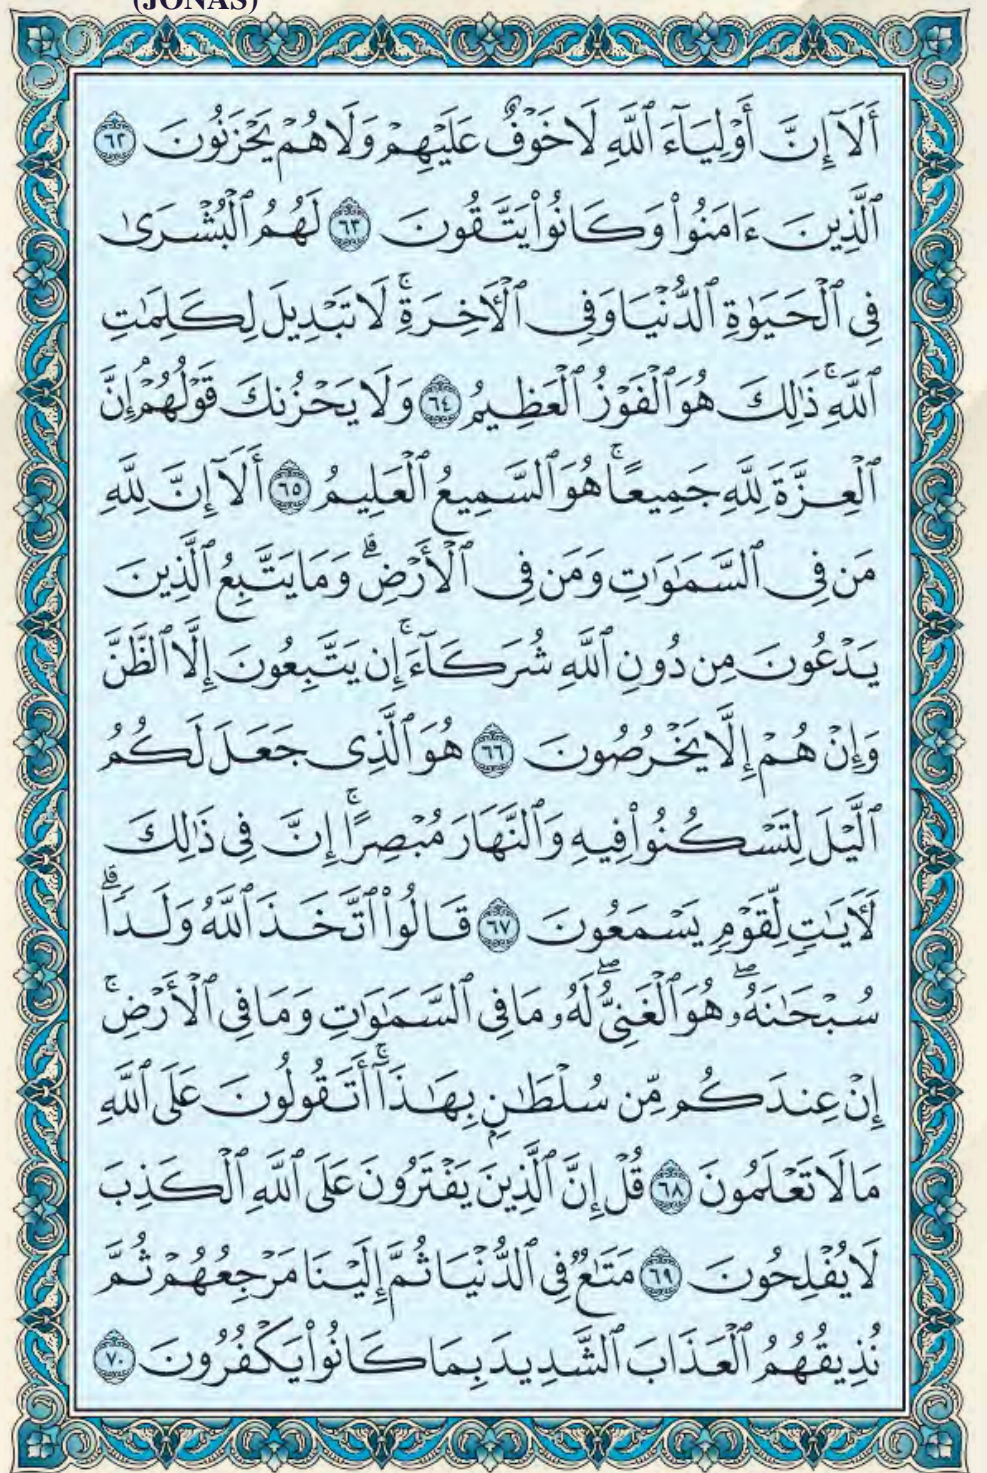 (JONAS)
أَلَآ إِنَّ أَوْلِيَآءَ ٱللَّهِ لَا خَوْفٌ عَلَيْهِمْ وَلَا هُمْ يَحْزَنُونَ ٦٢
ٱلَّذِينَ ءَامَنُوا۟ وَكَانُوا۟ يَتَّقُونَ ٦٣ لَهُمُ ٱلْبُشْرَىٰ
فِى ٱلْحَيَوٰةِ ٱلدُّنْيَا وَفِى ٱلْـَٔاخِرَةِ ۚ لَا تَبْدِيلَ لِكَلِمَـٰتِ
ٱللَّهِ ۚ ذَٰلِكَ هُوَ ٱلْفَوْزُ ٱلْعَظِيمُ ٦٤ وَلَا يَحْزُنكَ قَوْلُهُمْ ۘ إِنَّ
ٱلْعِزَّةَ لِلَّهِ جَمِيعًا ۚ هُوَ ٱلسَّمِيعُ ٱلْعَلِيمُ ٦٥ أَلَآ إِنَّ لِلَّهِ
مَن فِى ٱلسَّمَـٰوَٰتِ وَمَن فِى ٱلْأَرْضِ ۗ وَمَا يَتَّبِعُ ٱلَّذِينَ
يَدْعُونَ مِن دُونِ ٱللَّهِ شُرَكَآءَ ۚ إِن يَتَّبِعُونَ إِلَّا ٱلظَّنَّ
وَإِنْ هُمْ إِلَّا يَخْرُصُونَ ٦٦ هُوَ ٱلَّذِى جَعَلَ لَكُمُ
ٱلَّيْلَ لِتَسْكُنُوا۟ فِيهِ وَٱلنَّهَارَ مُبْصِرًا ۚ إِنَّ فِى ذَٰلِكَ
لَـَٔايَـٰتٍ لِّقَوْمٍ يَسْمَعُونَ ٦٧ قَالُوا۟ ٱتَّخَذَ ٱللَّهُ وَلَدًا ۗ
سُبْحَـٰنَهُۥ ۖ هُوَ ٱلْغَنِىُّ ۖ لَهُۥ مَا فِى ٱلسَّمَـٰوَٰتِ وَمَا فِى ٱلْأَرْضِ ۚ
إِنْ عِندَكُم مِّن سُلْطَـٰنٍۭ بِهَـٰذَآ ۚ أَتَقُولُونَ عَلَى ٱللَّهِ
مَا لَا تَعْلَمُونَ ٦٨ قُلْ إِنَّ ٱلَّذِينَ يَفْتَرُونَ عَلَى ٱللَّهِ ٱلْكَذِبَ
لَا يُفْلِحُونَ ٦٩ مَتَـٰعٌ فِى ٱلدُّنْيَا ثُمَّ إِلَيْنَا مَرْجِعُهُمْ ثُمَّ
نُذِيقُهُمُ ٱلْعَذَابَ ٱلشَّدِيدَ بِمَا كَانُوا۟ يَكْفُرُونَ ٧٠